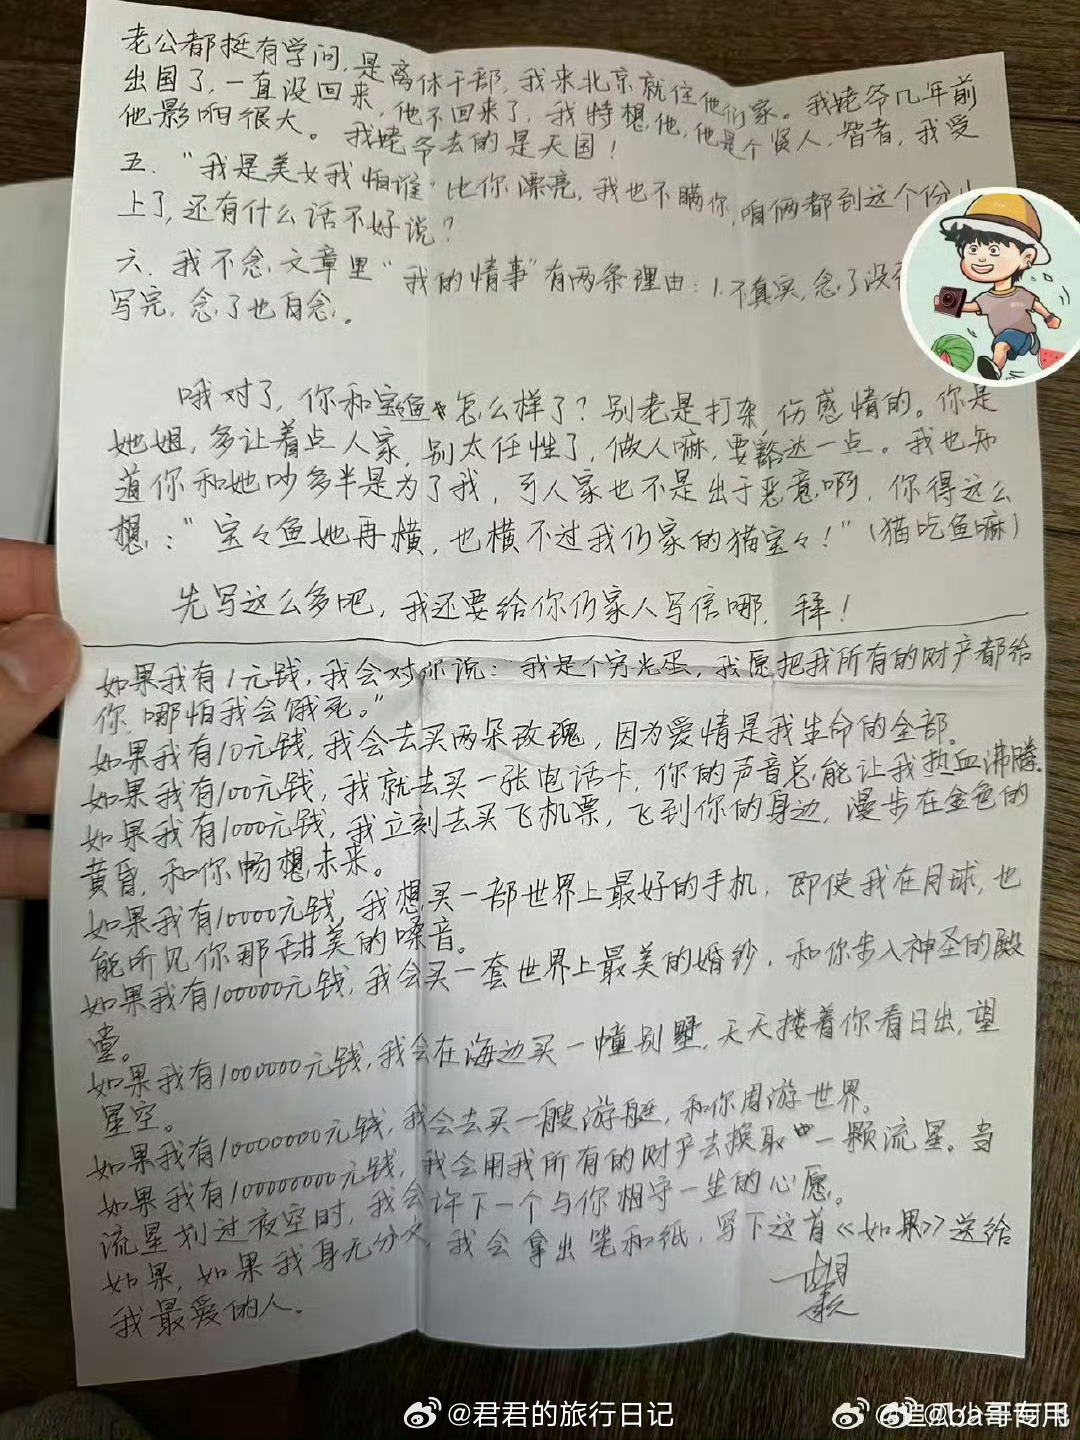 老公都挺有学问,是离休干部,我来北京就住他们家。我姥爷几年前
出国了,一直没回来,他不回来了,我特想他,他是个贤人,智者,我受
他影响很大。我姥爷去的是天国!
五.“我是美女我怕谁”比你漂亮,我也不瞒你,咱俩都到这个份儿
上了,还有什么话不好说?
六.我不念文章里“我的情事”有两条理由:1.不真实,念了没
写完,念了也白念。
哦对了,你和宝鱼怎么样了?别老是打杂,伤感情的。你是
她姐,多让着点人家,别太任性了,做人嘛,要豁达一点。我也知
道你和她吵多半是为了我,可人家也不是出于恶意啊,你得这么
想:“宝々鱼她再横,也横不过我们家的猫宝々!”(猫吃鱼嘛)
先写这么多吧,我还要给你们家人写信哪,拜!
如果我有1元钱,我会对你说:“我是个穷光蛋,我愿把我所有的财产都给
你,哪怕我会饿死。”
如果我有10元钱,我会去买两朵玫瑰,因为爱情是我生命的全部。
如果我有100元钱,我就去买一张电话卡,你的声音总能让我热血沸腾。
如果我有1000元钱,我立刻去买飞机票,飞到你的身边,漫步在金色的
黄昏,和你畅想未来。
如果我有10000元钱,我想买一部世界上最好的手机,即使我在月球,也
能听见你那甜美的嗓音。
如果我有100000元钱,我会买一套世界上最美的婚纱,和你步入神圣的殿
堂。
如果我有1000000元钱,我会在海边买一幢别墅,天天搂着你看日出,望
星空。
如果我有10000000元钱,我会去买一艘游艇,和你周游世界。
如果我有100000000元钱,我会用我所有的财产去换取一颗流星。当
流星划过夜空时,我会许下一个与你相守一生的心愿。
如果,如果我身无分文,我会拿出笔和纸,写下这首《如果》送给
我最爱的人。
@君君的旅行日记